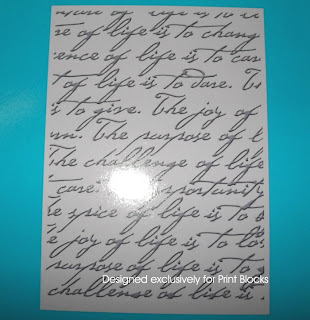 of life is to
se of life is to chang
ence of life is to car
t of life is to dare. T
s to give. The joy of
The purpose of t
The challenge of life
care. opportunity
he spice of life is to
e joy of life is to lo
purpose of life is to
challenge of life is
Designed exclusively for Print Blocks